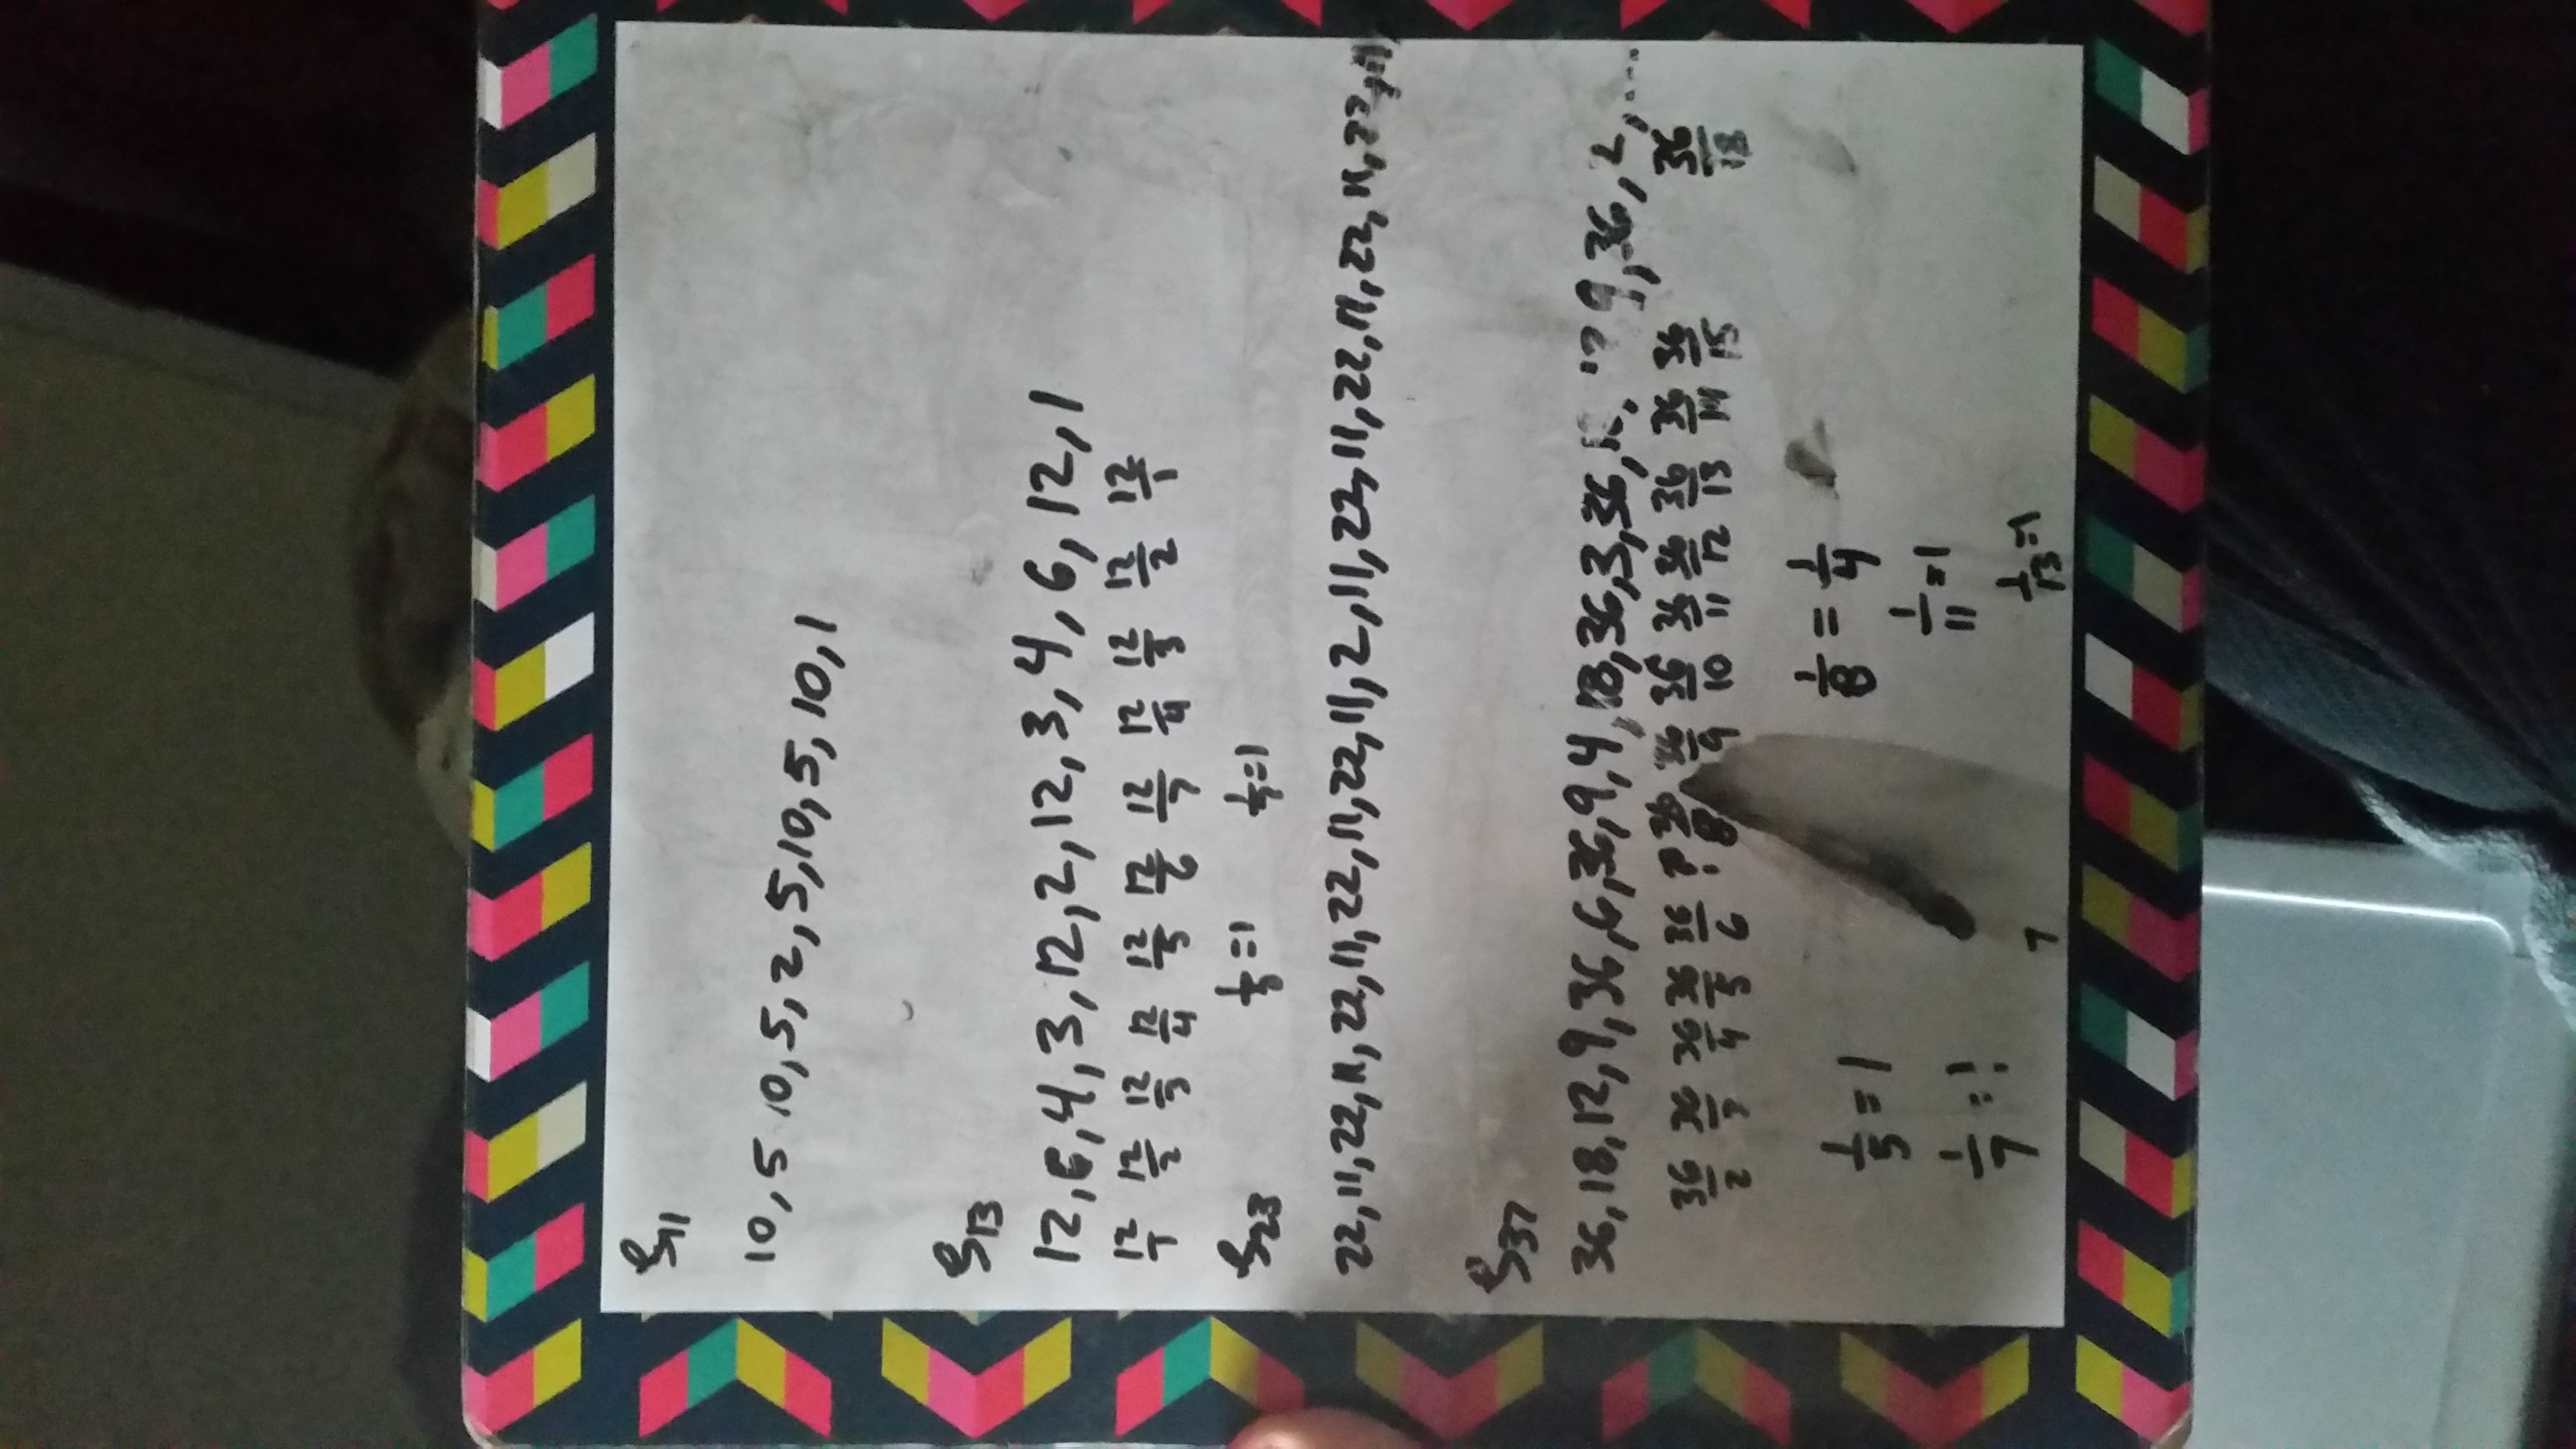 ξ11
10, 5 10, 5, 2, 5, 10, 5, 10, 1
ξ13
12, 6, 4, 3, 12, 2, 12, 3, 4, 6, 12, 1
12/1 12/2 12/3 12/4 12/5 12/6 12/7 12/4 12/3 12/2 12/1
ξ23 1/5=1 1/7=1
22, 11, 22, 11, 22, 11, 22, 11, 22, 11, 2, 11, 22, 11, 22, 11, 22, 11, 22, 11,
ξ37
36, 18, 12, 9, 36, 6, 36, 9, 4, 18, 36, 3, 36, 9, 36, 2, ...
36/2 36/3 36/4 36/5 36/6 ? 36/8 36/9 36/10 36/11 36/12 36/13 36/14 36/15 36/18
1/8 = 1/4
1/5 = 1
1/11 = 1
1/7 = !
1/13 = 1
7